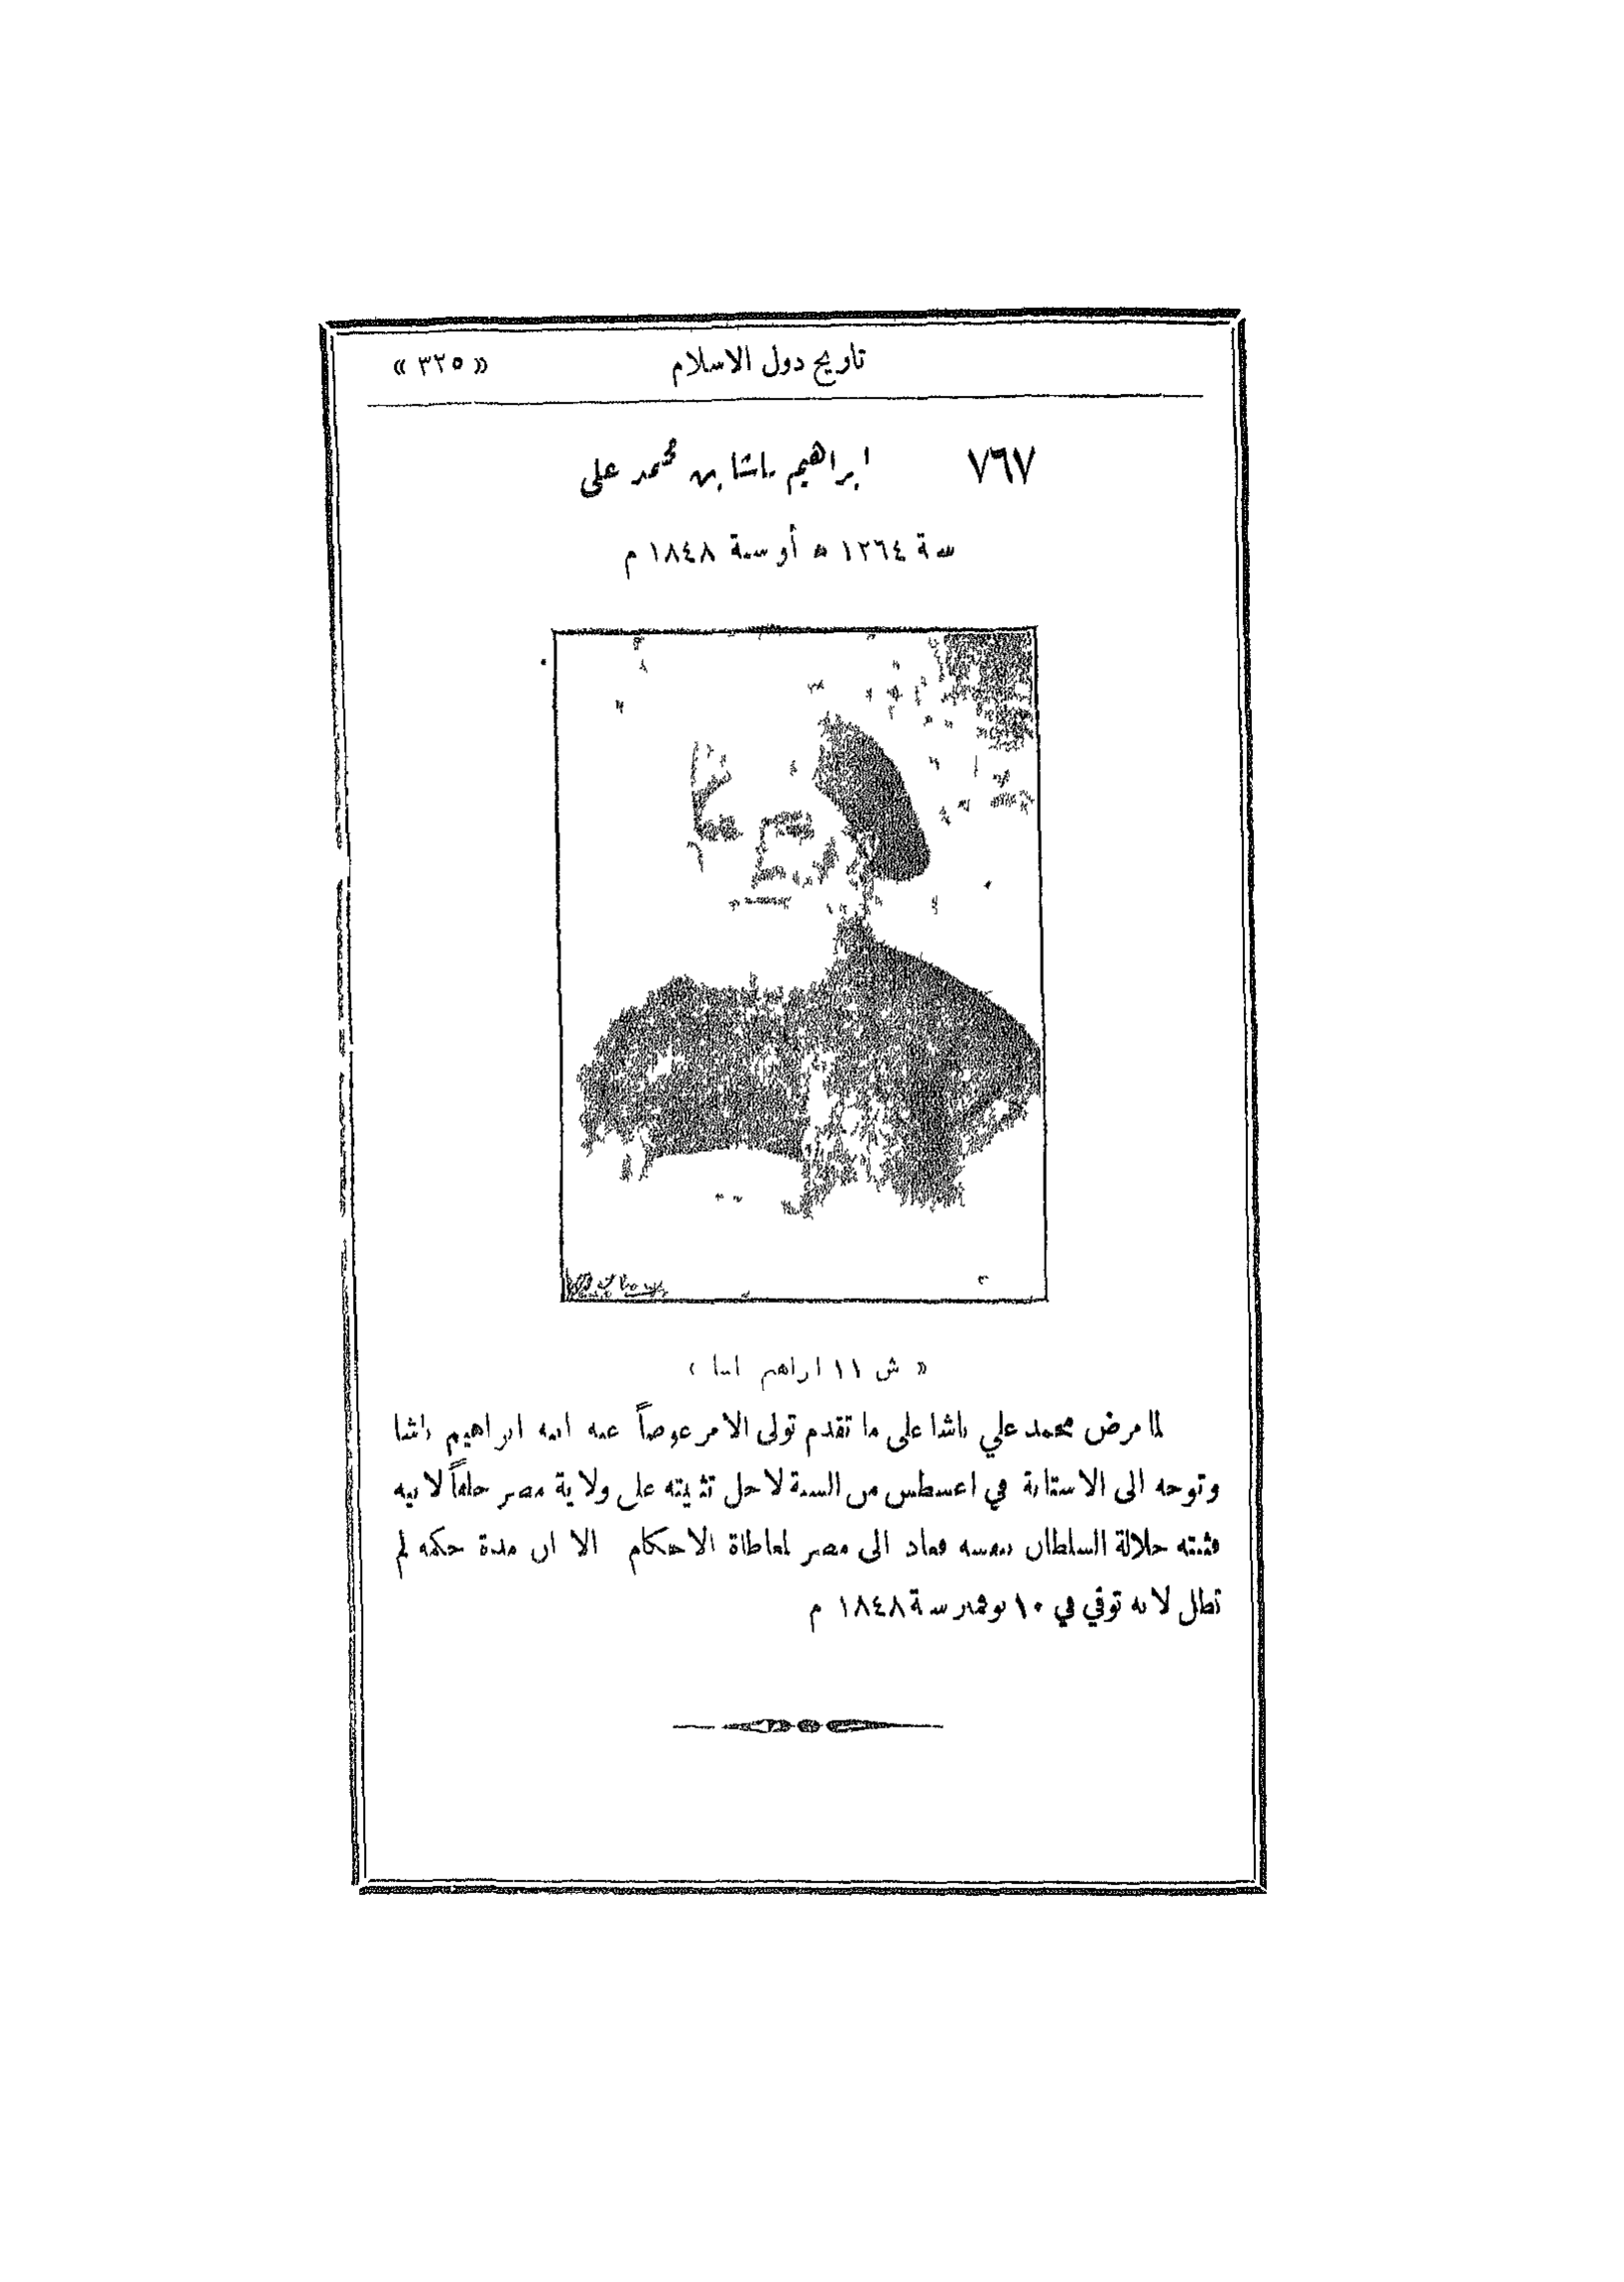 تاريخ دول الاسلام « ٣٢٥ »
٧٦٧ ابراهيم باشا بن محمد على
سنة ١٢٦٤ ه أو سنة ١٨٤٨ م
« ش ١١ ابراهيم باشا »
لما مرض محمد علي باشا على ما تقدم تولى الامر عوضاً عنه ابنه ابراهيم باشا
وتوجه الى الاستانة في اغسطس من السنة لاجل تثبيته على ولاية مصر خلفاً لابيه
فثبته جلالة السلطان بنفسه فعاد الى مصر لمعاطاة الاحكام الا ان مدة حكمه لم
تطل لانه توفي في ١٠ نوفمبر سنة ١٨٤٨ م